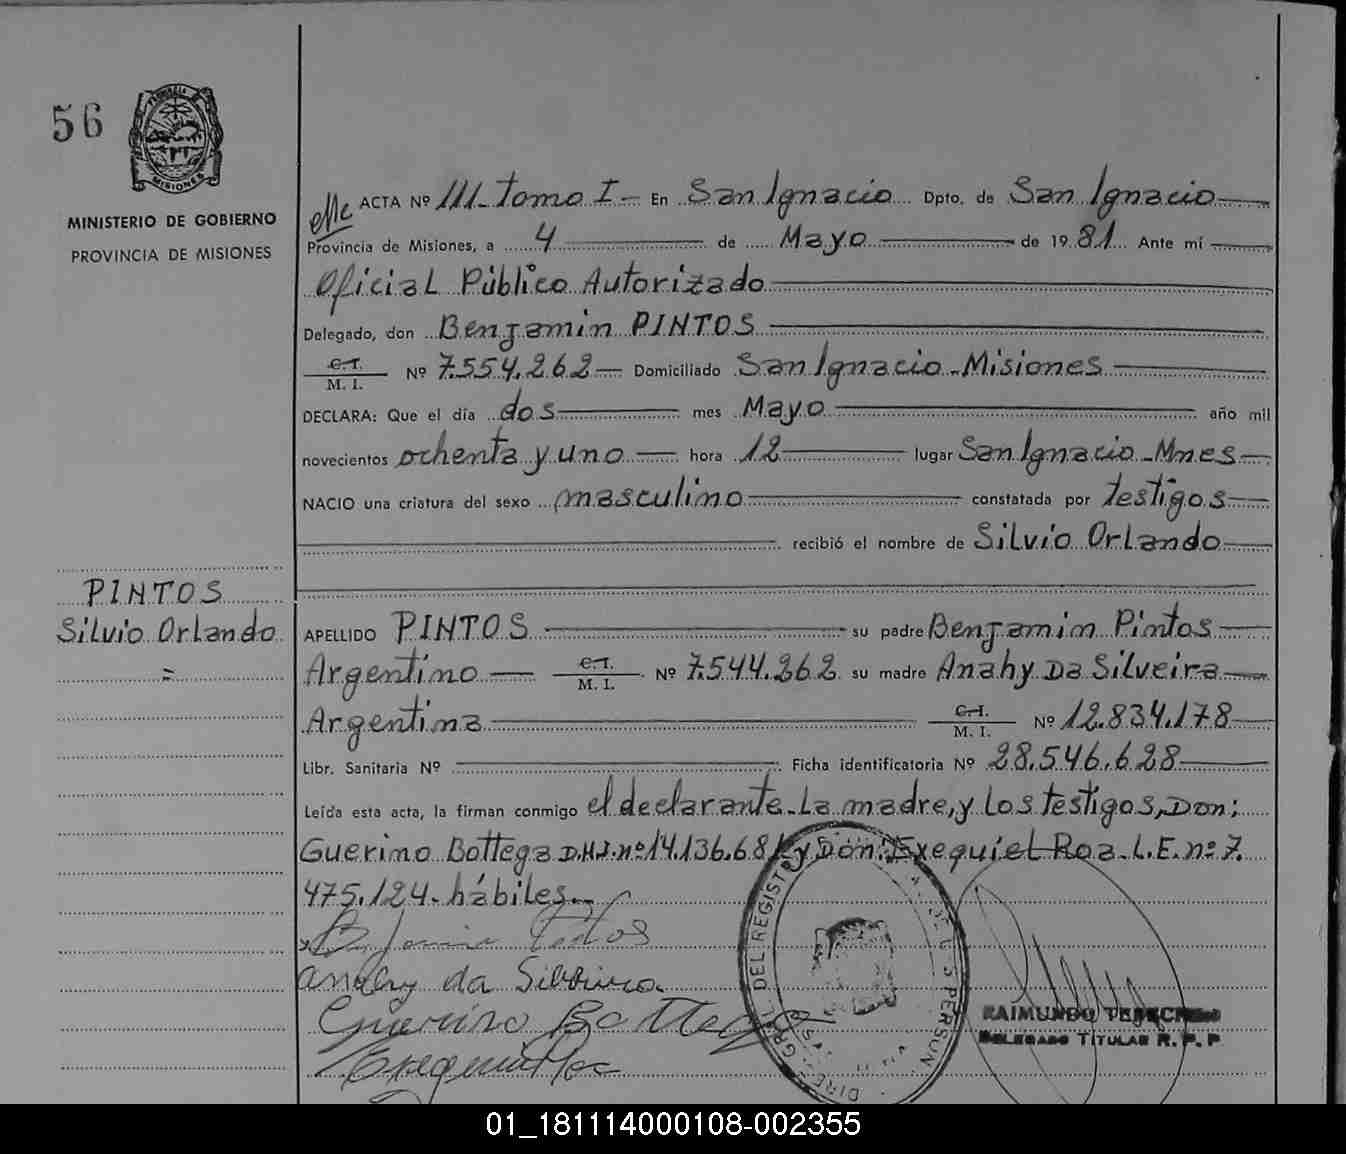 56
PROVINCIA
MISIONES
MINISTERIO DE GOBIERNO
PROVINCIA DE MISIONES
ACTA Nº 111-Tomo I- En San Ignacio Dpto. de San Ignacio
Provincia de Misiones, a 4 de Mayo de 1981 Ante mí
Oficial Público Autorizado
Delegado, don Benjamin PINTOS
C.I.
M. I. Nº 7.554.262 Domiciliado San Ignacio-Misiones
DECLARA: Que el día dos mes Mayo año mil
novecientos ochenta y uno hora 12 lugar San Ignacio-Mnes
NACIO una criatura del sexo masculino constatada por testigos
recibió el nombre de Silvio Orlando
PINTOS
Silvio Orlando
=
APELLIDO PINTOS su padre Benjamin Pintos
Argentino C.I. M. I. Nº 7.544.262 su madre Anahy Da Silveira
Argentina C.I. M. I. Nº 12.834.178
Libr. Sanitaria Nº Ficha identificatoria Nº 28.546.628
Leída esta acta, la firman conmigo el declarante-La madre, y Los testigos, Don:
Guerino Bottega D.N.I. nº 14.136.681 y Don: Exequiel Roa-L.E. nº 7.
475.124-hábiles
Benjamin Pintos
anahy da Silveira
Guerino Bottega
Exequiel Roa
DEL REGISTRO DE LAS PERSON
RAIMUNDO
DELEGADO TITULAR R. P. P
01_181114000108-002355